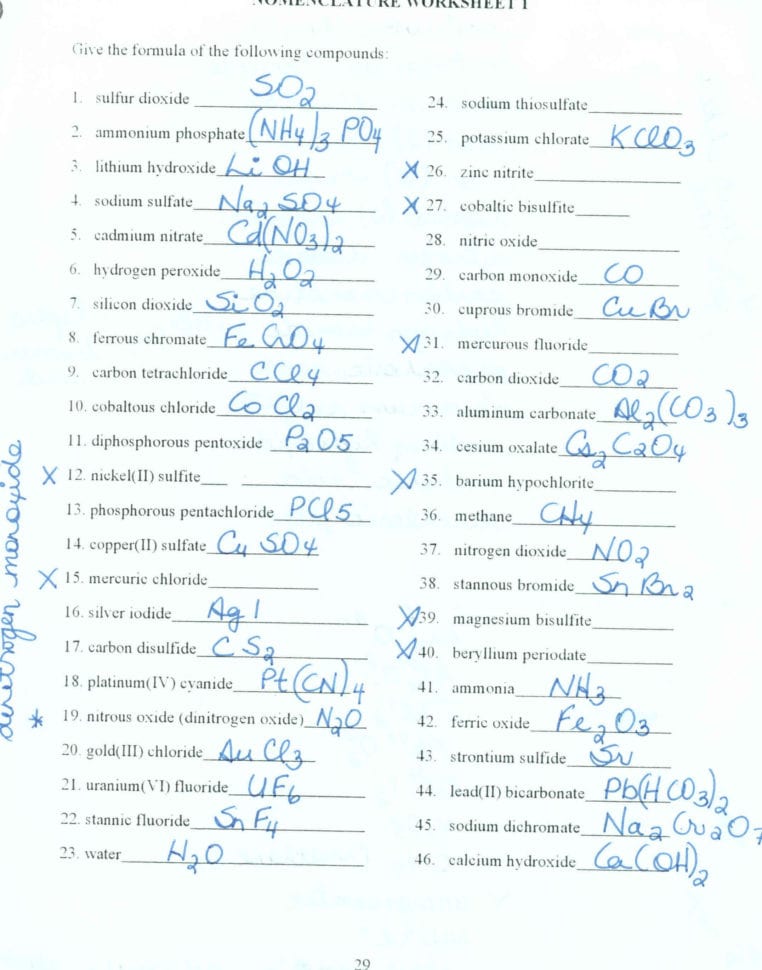 NOMENCLATURE WORKSHEET 1
Give the formula of the following compounds:
1. sulfur dioxide SO2
2. ammonium phosphate (NH4)3 PO4
3. lithium hydroxide Li OH
4. sodium sulfate Na2 SO4
5. cadmium nitrate Cd(NO3)2
6. hydrogen peroxide H2O2
7. silicon dioxide SiO2
8. ferrous chromate Fe CrO4
9. carbon tetrachloride CCl4
10. cobaltous chloride CoCl2
11. diphosphorous pentoxide P2O5
X 12. nickel(II) sulfite
13. phosphorous pentachloride PCl5
14. copper(II) sulfate Cu SO4
X 15. mercuric chloride
16. silver iodide AgI
17. carbon disulfide CS2
18. platinum(IV) cyanide Pt(CN)4
* 19. nitrous oxide (dinitrogen oxide) N2O
20. gold(III) chloride AuCl3
21. uranium(VI) fluoride UF6
22. stannic fluoride SnF4
23. water H2O
monoxide
24. sodium thiosulfate
25. potassium chlorate KClO3
X 26. zinc nitrite
X 27. cobaltic bisulfite
28. nitric oxide
29. carbon monoxide CO
30. cuprous bromide CuBr
X 31. mercurous fluoride
32. carbon dioxide CO2
33. aluminum carbonate Al2(CO3)3
34. cesium oxalate Cs2C2O4
X 35. barium hypochlorite
36. methane CH4
37. nitrogen dioxide NO2
38. stannous bromide SnBr2
X 39. magnesium bisulfite
X 40. beryllium periodate
41. ammonia NH3
42. ferric oxide Fe2O3
43. strontium sulfide Sr
44. lead(II) bicarbonate Pb(HCO3)2
45. sodium dichromate Na2Cr2O7
46. calcium hydroxide Ca(OH)2
29